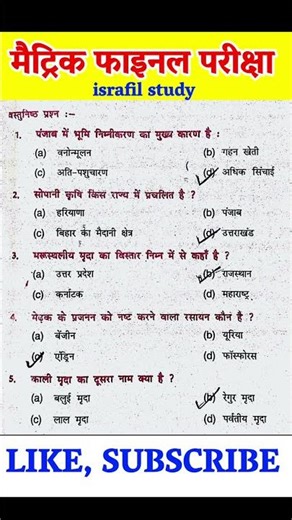 मैट्रिक फाइनल परीक्षा
israfil study
वस्तुनिष्ठ प्रश्न :–
1. पंजाब में भूमि निम्नीकरण का मुख्य कारण है :
(a) वनोन्मूलन (b) गहन खेती
(c) अति-पशुचारण (d) अधिक सिंचाई
2. सोपानी कृषि किस राज्य में प्रचलित है ?
(a) हरियाणा (b) पंजाब
(c) बिहार का मैदानी क्षेत्र (d) उत्तराखंड
3. मरूस्थलीय मृदा का विस्तार निम्न में से कहाँ है ?
(a) उत्तर प्रदेश (b) राजस्थान
(c) कर्नाटक (d) महाराष्ट्र
4. मेढ़क के प्रजनन को नष्ट करने वाला रसायन कौन है ?
(a) बेंजीन (b) यूरिया
(c) एंड्रिन (d) फॉस्फोरस
5. काली मृदा का दूसरा नाम क्या है ?
(a) बलुई मृदा (b) रेगुर मृदा
(c) लाल मृदा (d) पर्वतीय मृदा
LIKE, SUBSCRIBE